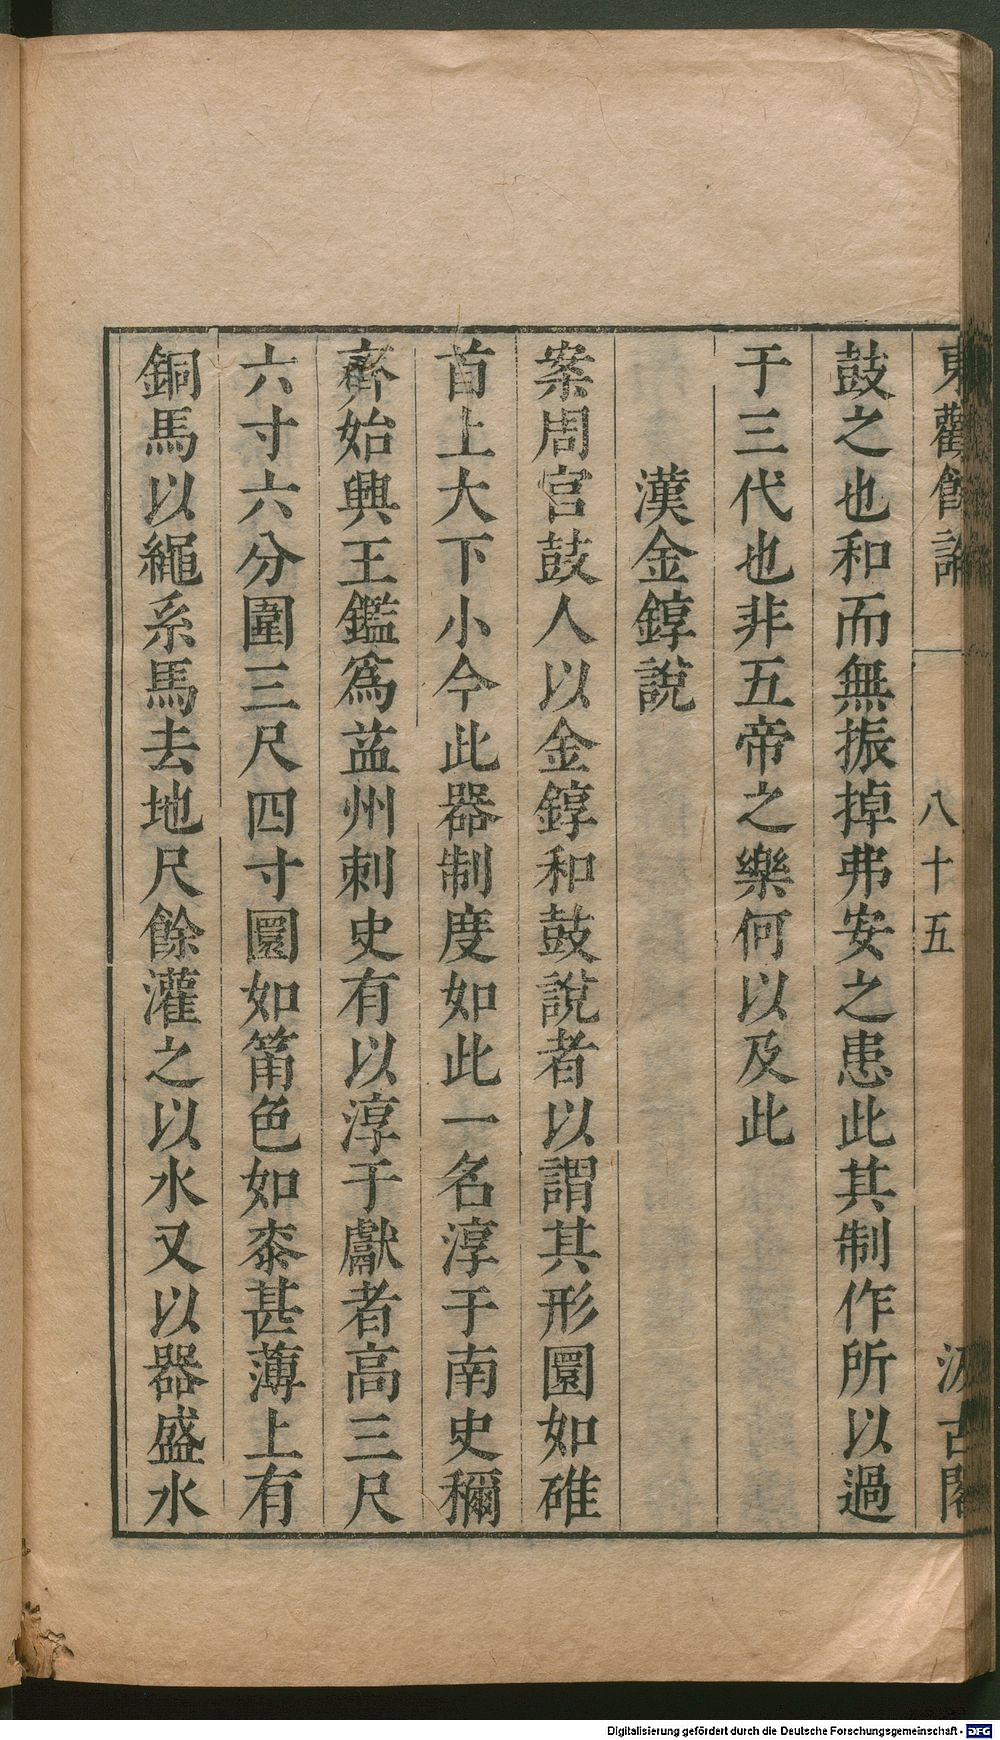 東觀餘論
八十五
汲古閣
鼓之也和而無振掉弗安之患此其制作所以過
于三代也非五帝之樂何以及此
漢金錞說
案周官鼓人以金錞和鼓說者以謂其形圜如碓
首上大下小今此器制度如此一名淳于南史稱
齊始興王鑑爲益州刺史有以淳于獻者高三尺
六寸六分圍三尺四寸圜如筩色如桼甚薄上有
銅馬以繩系馬去地尺餘灌之以水又以器盛水
Digitalisierung gefördert durch die Deutsche Forschungsgemeinschaft - DFG